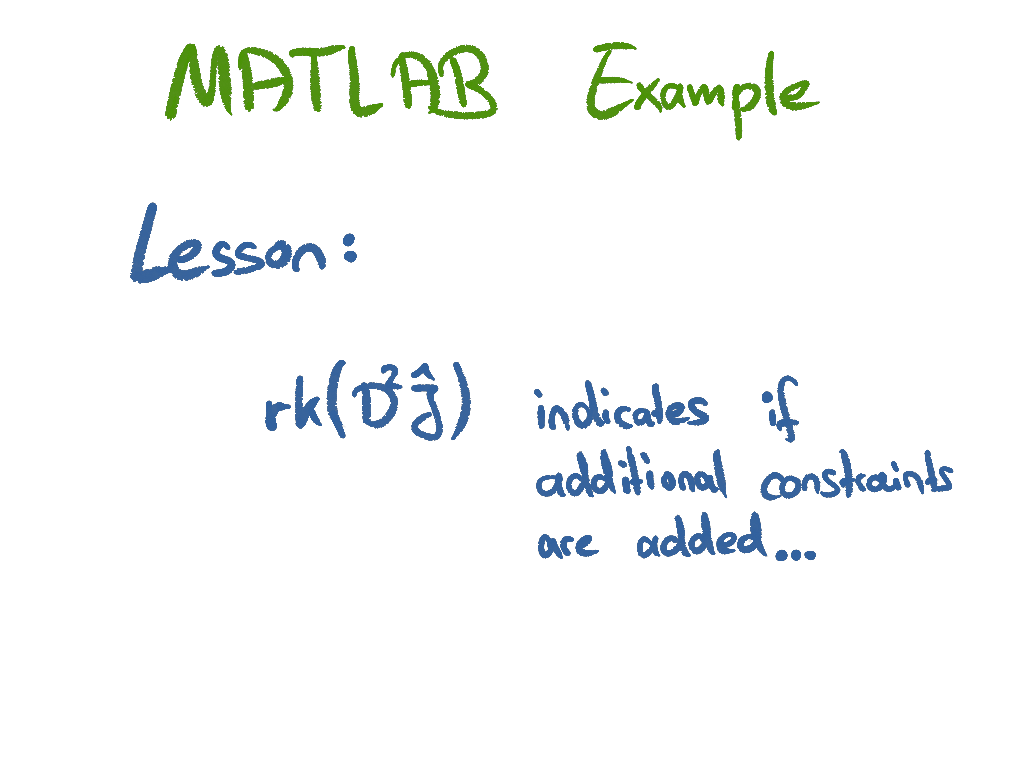 MATLAB Example
Lesson:
rk(D²Ĵ) indicates if
additional constraints
are added...